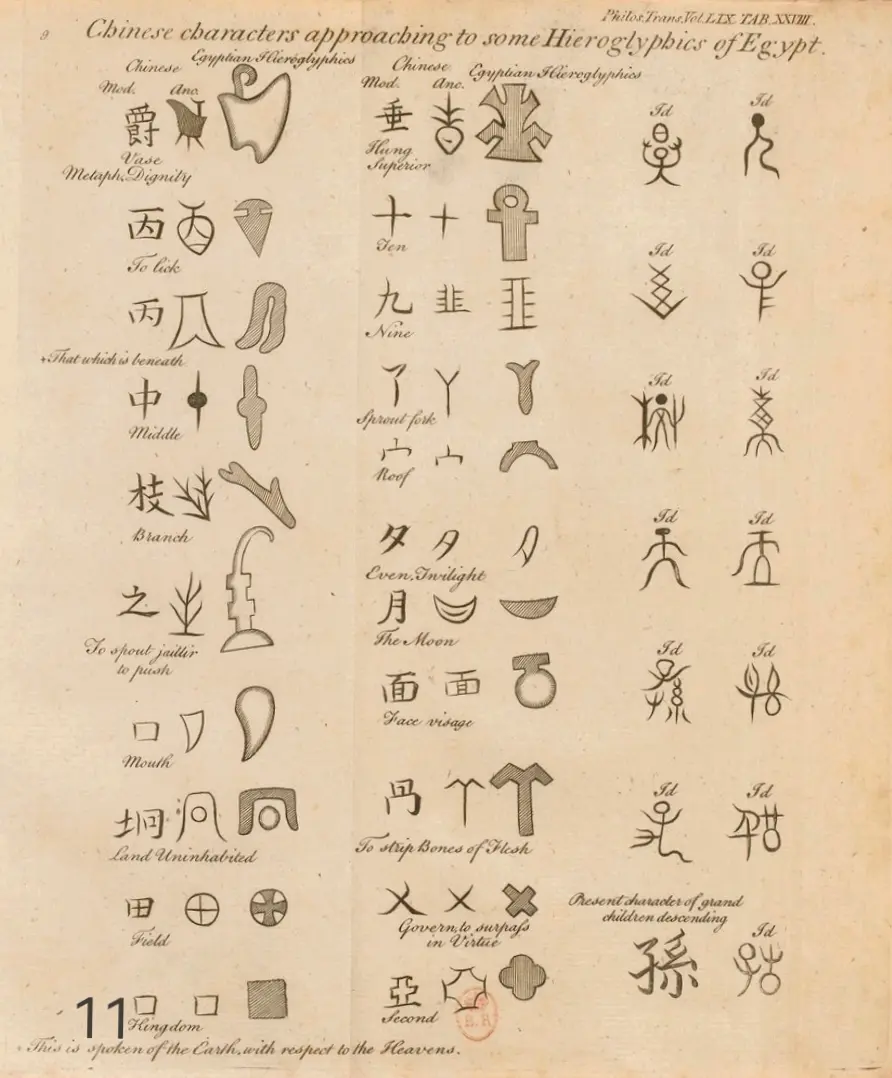 Philos. Trans. Vol. LIX. TAB. XXVIII.
9 Chinese characters approaching to some Hieroglyphics of Egypt.
Chinese Egyptian Hieroglyphics
Mod. Anc.
爵
Vase
Metaph. Dignity
丙
To lick
丙
+That which is beneath
中
Middle
枝
Branch
之
To spout jaillir
to push
口
Mouth
坰
Land Uninhabited
田
Field
囗
Kingdom
Chinese Egyptian Hieroglyphics
Mod. Anc.
垂
Hung
Superior
十 十
Ten
九 韭
Nine
丫
Sprout fork
宀 宀
Roof
夕 夕
Even, Twilight
月
The Moon
面 面
Face visage
To strip Bones of Flesh
乂
Govern, to surpass
in Virtue
亞
Second
Id Id
Id Id
Id Id
Id Id
Id Id
Id Id
Present character of grand
children descending
孫 Id
11
+This is spoken of the Earth, with respect to the Heavens.